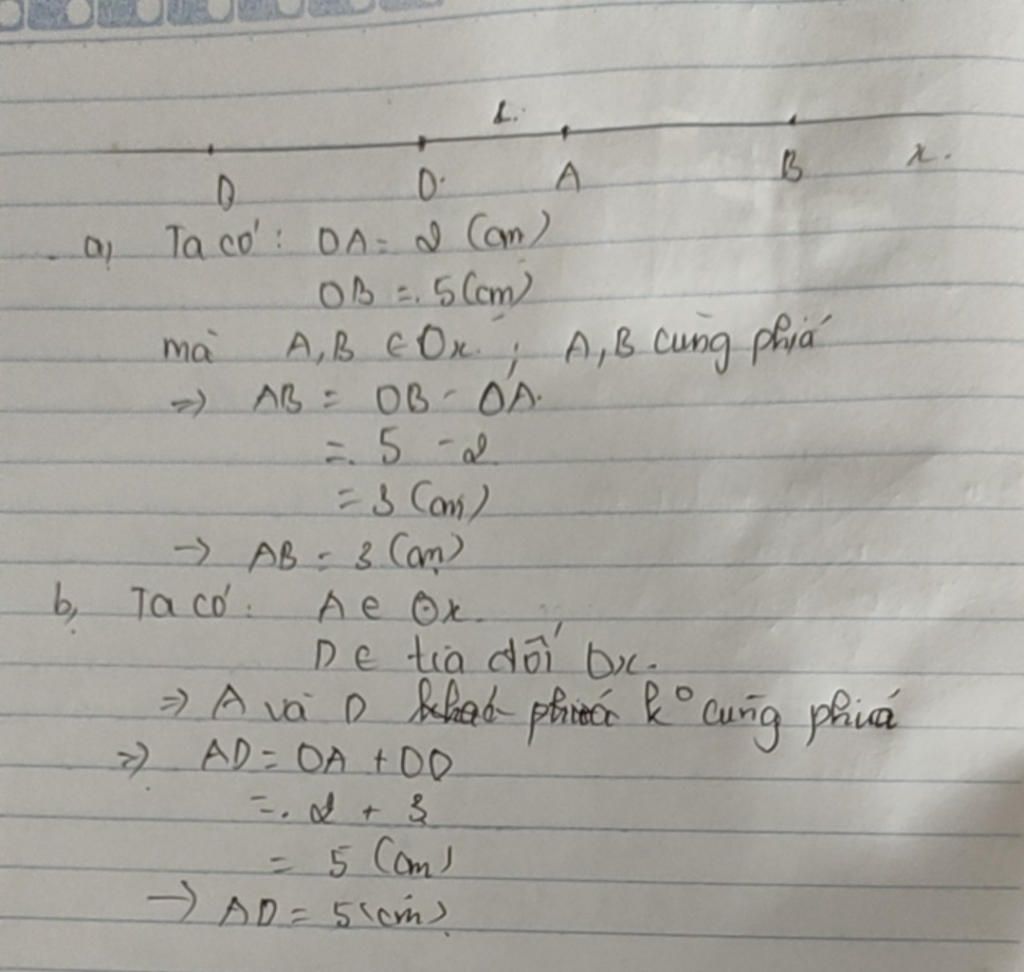 2.
D O A B x.
a, Ta có: OA = 2 (cm)
OB = 5 (cm)
mà A, B ∈ Ox ; A, B cùng phía
=> AB = OB - OA
= 5 - 2
= 3 (cm)
-> AB = 3 (cm)
b, Ta có: A ∈ Ox.
D ∈ tia đối Ox.
=> A và D k° cùng phía
=> AD = OA + OD
= 2 + 3
= 5 (cm)
-> AD = 5 (cm)